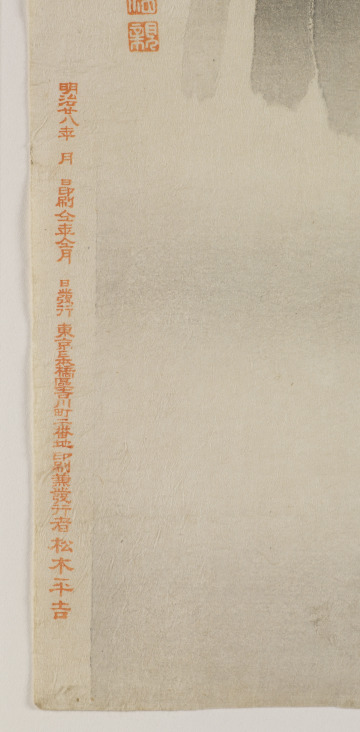 明治廿八年 月 日印刷仝年仝月 日發行 東京市日本橋區吉川町二番地印刷兼發行者 松木平吉